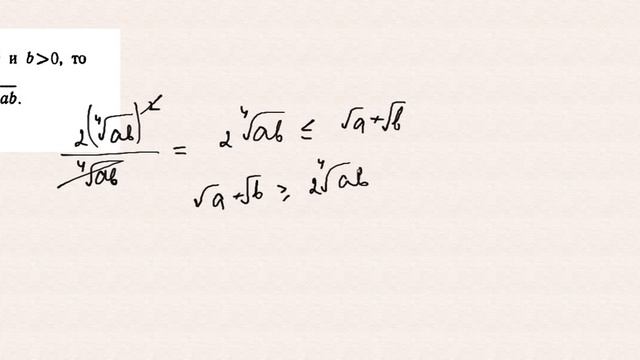 и b>0, то
ab.
2(∜ab)² / ∜ab = 2∜ab ≤ √a+√b
√a+√b ≥ 2∜ab